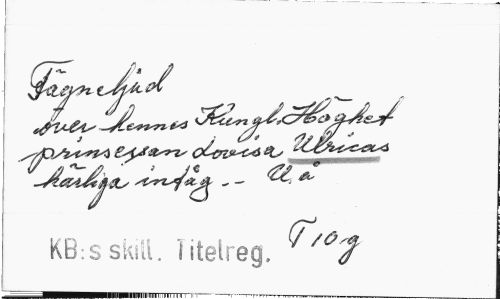 Fägneljud
över hennes Kungl. Höghet
prinsessan Lovisa Ulricas
härliga intåg -- U. å
T 10 g
KB:s skill. Titelreg.